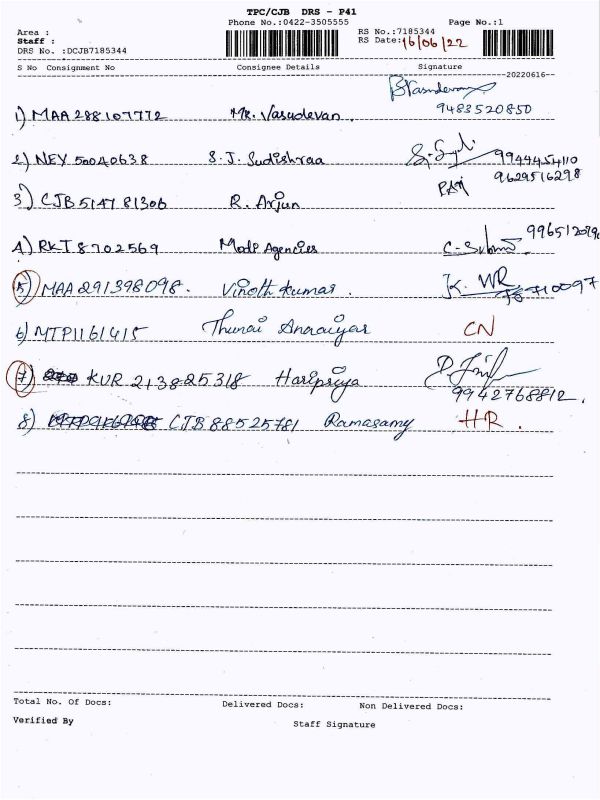 TPC/CJB DRS - P41
Phone No.:0422-3505555 Page No.:1
Area : RS No.:7185344
Staff : RS Date:16/06/22
DRS No. :DCJB7185344
S No Consignment No Consignee Details Signature
20220616
1) MAA 288107772 Mr. Vasudevan. 9483520850
2) NEY 50040638 S. J. Sudishraa 9944454110
9629516298
3) CJB 5147 81306 R. Arjun
4) RKT 8702569 Modi Agencies
5) MAA 291398098. Vinoth kumar.
6) MTP1161415 Thunai CN
7) KUR 213825318 Haripriya
9942768812.
8) CJB 88525781 Ramasamy HR.
Total No. Of Docs: Delivered Docs: Non Delivered Docs:
Verified By Staff Signature